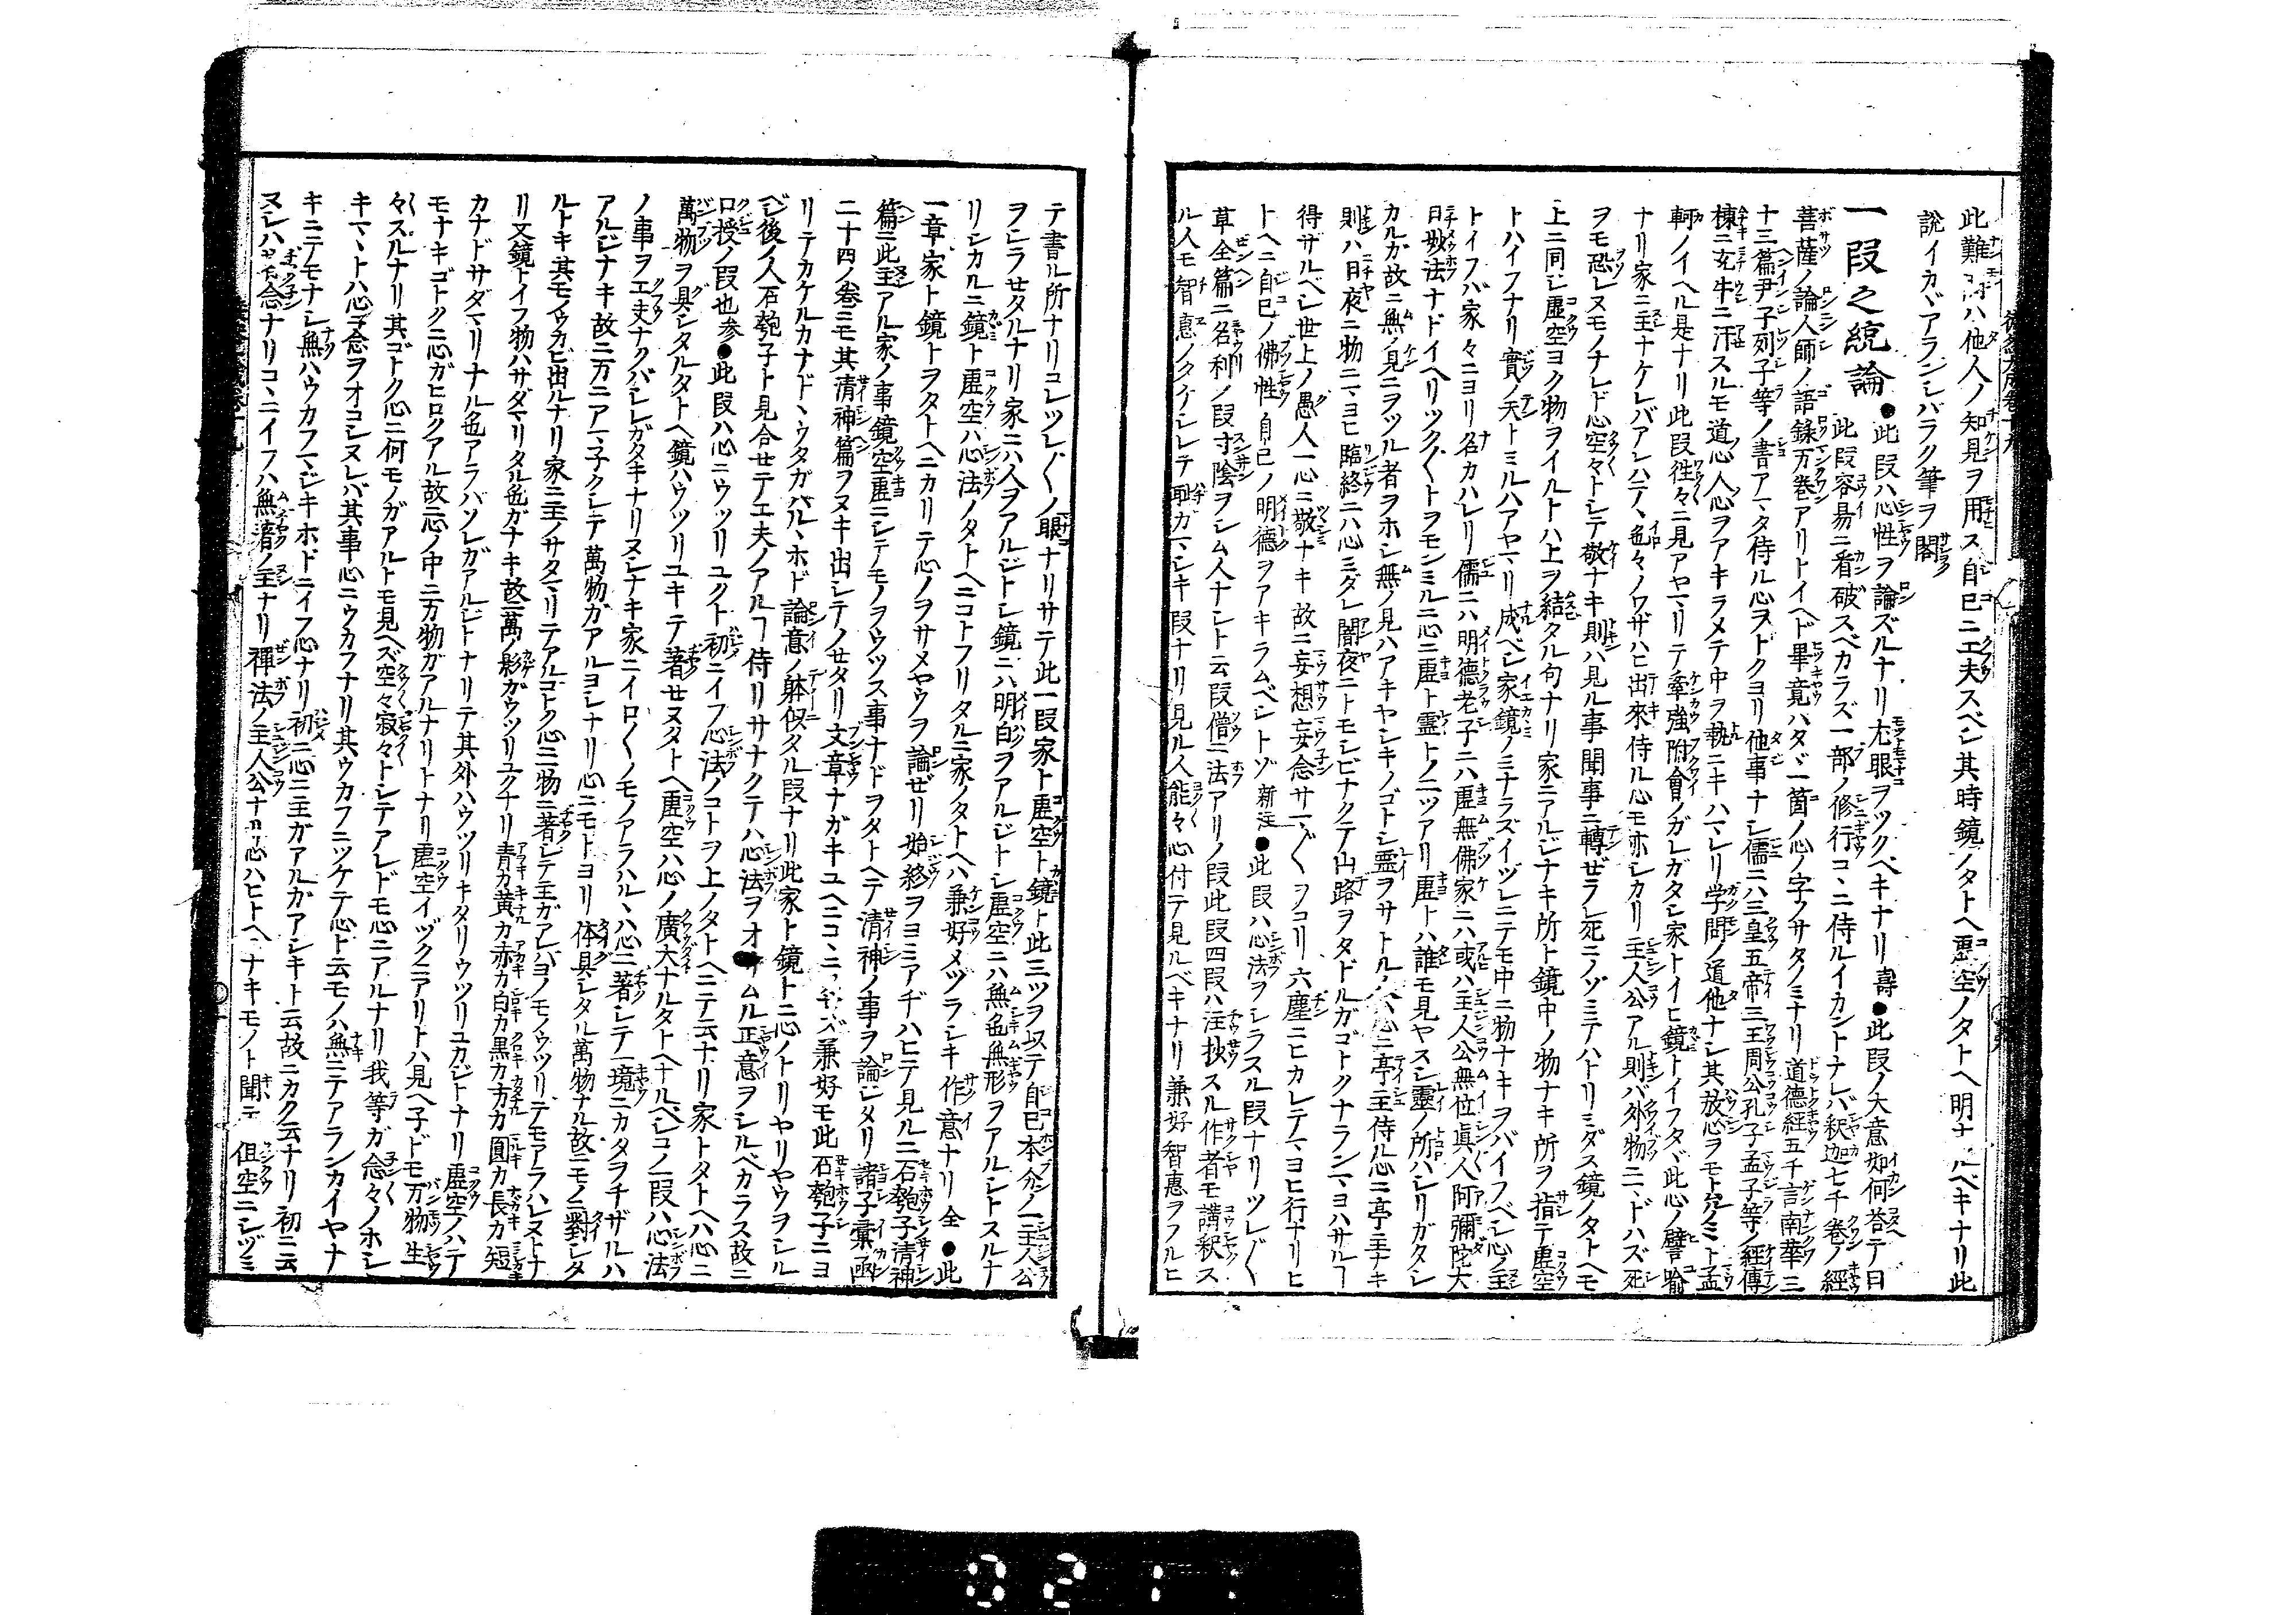 此難 ハ他人ノ知見ヲ用ス自己ニ工夫スベシ其時鏡ノタトヘ虚空ノタトヘ明ナルベキナリ此
説イカヾアランシバラク筆ヲ閣
一段之統論 ●此段ハ心性ヲ論ズルナリ尤眼ヲツクベキナリ壽●此段ノ大意如何答テ曰
此段容易ニ看破スベカラズ一部ノ修行コヽニ侍ルイカントナレバ釈迦七千巻ノ經
菩薩ノ論人師ノ語録万巻アリトイヘド畢竟ハタヾ一箇ノ心ノ字ノサタノミナリ道徳經五千言南華三
十三篇尹子列子等ノ書アマタ侍ル心ヲトクヨリ他事ナシ儒ニハ三皇五帝三王周公孔子孟子等ノ經傳
棟ニ充牛ニ汗スルモ道心人心ヲアキラメテ中ヲ執ニキハマレリ学問ノ道他ナシ其放心ヲモトムルノミト孟
軻ノイヘル是ナリ此段往々ニ見アヤマリテ牽強附會ノガレガタシ家トイヒ鏡トイフタヾ此心ノ譬喩
ナリ家ニ主ナケレバアレハテヽ色々ノワザハヒ出來侍ル心モ亦シカリ主人公アル則バ外物ニヽドハズ死
ヲモ恐レヌモノナレド心空々トシテ敬ナキ則ハ見ル事聞事ニ轉ゼラレ死ニノゾミテハトリミダス鏡ノタトヘモ
上ニ同シ虚空ヨク物ヲイルトハ上ヲ結タル句ナリ家ニアルジナキ所ト鏡中ノ物ナキ所ヲ指テ虚空
トハイフナリ實ノ天トミルハアヤマリ成ベシ家鏡ノミナラズイヅレニテモ中ニ物ナキヲバイフベシ心ノ主
トイフハ家々ニヨリ名カハレリ儒ニハ明徳老子ニハ虚無佛家ニハ或ハ主人公無位眞人阿彌陀大
日妙法ナドイヘリツクヅクトヲモンミルニ心ニ虚ト霊トノ二ツアリ虚トハ誰モ見ヤスシ靈ノ所ハシリガタシ
カルガ故ニ無ノ見ニヲツル者ヲホシ無ノ見ハアキヤシキノゴトシ霊ヲサトルノ人ハ心ニ亭主侍ル心ニ亭主ナキ
則ハ日夜ニ物ニマヨヒ臨終ニハ心ミダレ闇夜ニトモシビナクテ山路ヲタドルガゴトクナランマヨハサルヿ
得ザルベシ世上ノ愚人一心ニ敬ナキ故ニ妄想妄念サマ〴〵ヲコリ六塵ニヒカレテマヨヒ行ナリヒ
トヘニ自己ノ佛性自己ノ明徳ヲアキラムベシトゾ新注●此段ハ心法ヲシラスル段ナリツレ〴〵
草全篇ニ名利ノ段寸陰ヲシム人ナシト云段僧ニ法アリノ段此段四段ハ注抄スル作者モ講釈ス
ル人モ智惠ノタケシレテ恥カシキ段ナリ見ル人能々心付テ見ルベキナリ兼好智惠ヲフルヒ
テ書ル所ナリコレツレ〴〵ノ眼ナリサテ此一段家ト虚空ト鏡ト此三ツヲ以テ自己本分ノ一主人公
ヲシラセタルナリ家ニハ人ヲアルジトシ鏡ニハ明白ヲアルジトシ虚空ニハ無色無形ヲアルシトスルナ
リシカルニ鏡ト虚空ハ心法ノタトヘニコトフリタルニ家ノタトヘハ兼好メヅラシキ作意ナリ全●此
一章家ト鏡トヲタトヘニカリテ心ノヲサメヤウヲ論ゼリ始終ヲヨミアヂハヒテ見ルニ石匏子清神
篇ニ此主アル家ノ事鏡空虚ニシテモノヲウツス事ナドヲタトヘテ清神ノ事ヲ論シメリ諸子彙函
二十四ノ巻ニモ其清神篇ヲヌキ出シテノセタリ文章ナガキユヘニコヽニ ズ兼好モ此石匏子ニヨ
リテカケルカナドヽウタガハルヽホド論意ノ躰似タル段ナリ此家ト鏡トニ心ノトリヤリヤウヲシル
ベシ後ノ人石匏子ト見合セテ工夫ノアルヿ侍リサナクテハ心法ヲオサムル正意ヲシルベカラス故ニ
口授ノ段也参●此段ハ心ニウツリユクト初ニイフ心法ノコトヲ上ノタトヘニテ云ナリ家トタトヘハ心ニ
萬物ヲ具シタルタトヘ鏡ハウツリユキテ著セヌタトヘ虚空ハ心ノ廣大ナルタトヘナルベシコノ一段ハ心法
ノ事ヲ工夫ナクバシレガタキナリヌシナキ家ニイロ〳〵ノモノアラハルヽハ心ニ著シテ一境ニカタヲチザルハ
アルジナキ故ニ万ニアマ子クシテ萬物ガアルヨシナリ心ニモトヨリ体具シタル萬物ナル故ニモノニ對シタ
ルトキ其モノウカビ出ルナリ家ニ主ノサタマリテアルゴトク心ニ物ニ著シテ主ガアレバヨノモノウツリテモアラハレヌトナ
リ又鏡トイフ物ハサダマリタル色ガナキ故ニ萬ノ影ガウツリユクナリ青カ黄カ赤カ白カ黒カ方カ圓カ長カ短
カナドサダマリナル色アラバソレガアルジトナリテ其外ハウツリキタリウツリユカジトナリ虚空ノハテ
モナキゴトクニ心ガヒロクアル故心ノ中ニ万物ガアルナリトナリ虚空イヅクニアリトハ見ヘ子ドモ万物生
々スルナリ其ゴトク心ニ何モノガアルトモ見ヘズ空々寂々トシテアレドモ心ニアルナリ我等ガ念々ノホシ
キマヽトハ心ニ念ヲオコシヌレバ其事心ニウカフナリ其ウカフニツケテ心ト云モノハ無ニテアランカイヤナ
キニテモナシ無ハウカフマジキホドニイフ心ナリ初ニ心ニ主ガアルガアシキト云故ニカク云ナリ初ニ云
ヌシハ 念ナリコヽニイフハ無著ノ主ナリ禪法ノ主人公ナリ心ハヒトヘニナキモノト聞テ 但空ニシヅミ